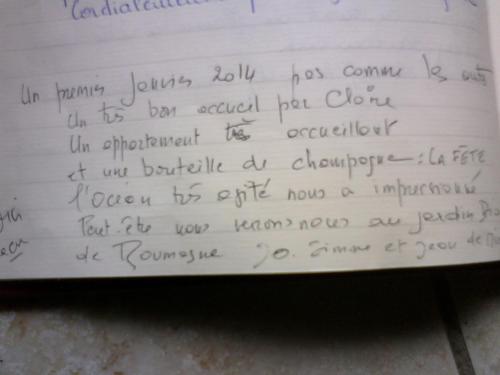 Cordialement
Un premier Janvier 2014 pas comme les autres
Un très bon accueil par Claire
Un appartement très accueillant
et une bouteille de champagne : LA FÊTE
l'océan très agité nous a impressionné
Peut-être vous verrons nous au jardin
de Roumagne Jo. Simone et Jean de